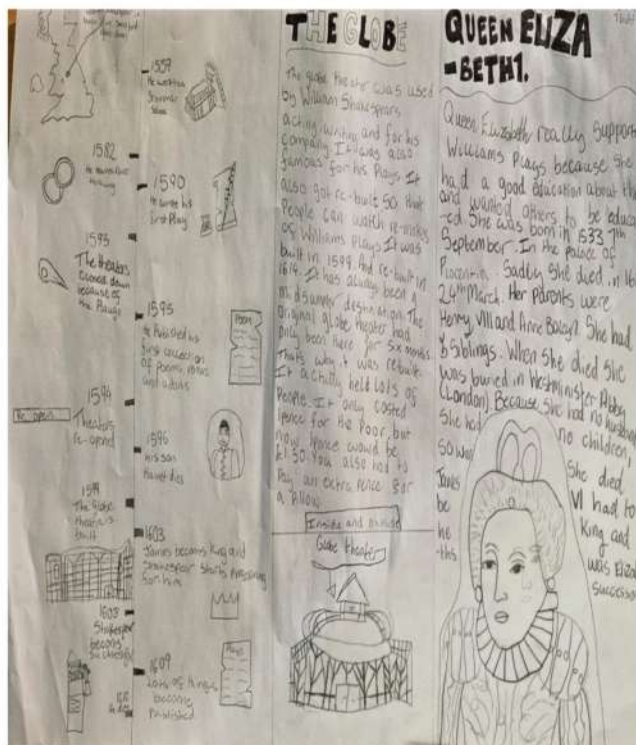 1557
He went to
Grammar
1582
He
1590
He wrote his
first Play
1593
The theators
closed down
because of
the Plauge
1595
He Published his
first collection
of poems,
and
Poem
Re open
1594
Theators
re-opened
1596
His son
Hamet dies
1599
The Globe
theatre is
built
1603
James becomes King and
Shakespear starts
for him
1603
Shakespear
becoms
1609
Lots of things
become
Published
Plays
He dies
THE GLOBE
The globe theater was used
by William Shakespears
acting, writing and for his
company. It was also
famous for his Plays. It
also got re-built so that
People can watch re-makes
of Williams Plays. It was
built in 1599. And re-built in
1614. It has always been a
destination. The
original globe theater had
only been there for six months.
Thats why it was rebuilt.
It actually held lots of
People. It only costed
1pence for the Poor, but
now 1pence would be
£1.50. You also had to
Pay an extra pence for
a Pillow.
Inside and outside
Globe theater
QUEEN ELIZA
-BETH1.
Queen Elizabeth really support
Williams Plays because she
had a good education about th
and wanted others to be educa
-ted. She was born in 1533 7th
September. In the palace of
Sadly she died in
24th March. Her parents were
Henry VIII and Anne Boleyn. She had
siblings. When she died she
was buried in Westminister Abby
(London) Because she had no husband
She had no children,
so when She died
James VI had to
be King and
he was Eliza
-ths successo